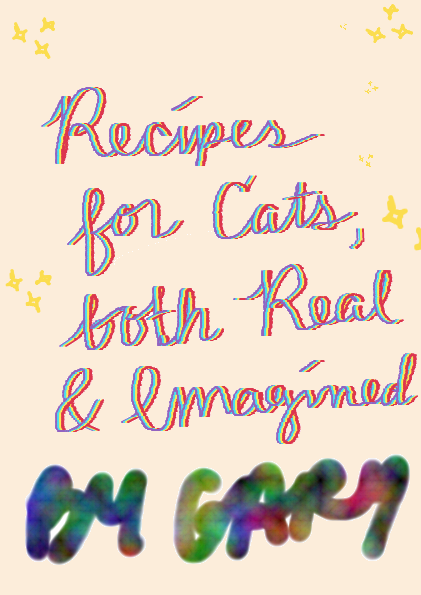 Recipes
for Cats,
both Real
& Imagined
BY GARY